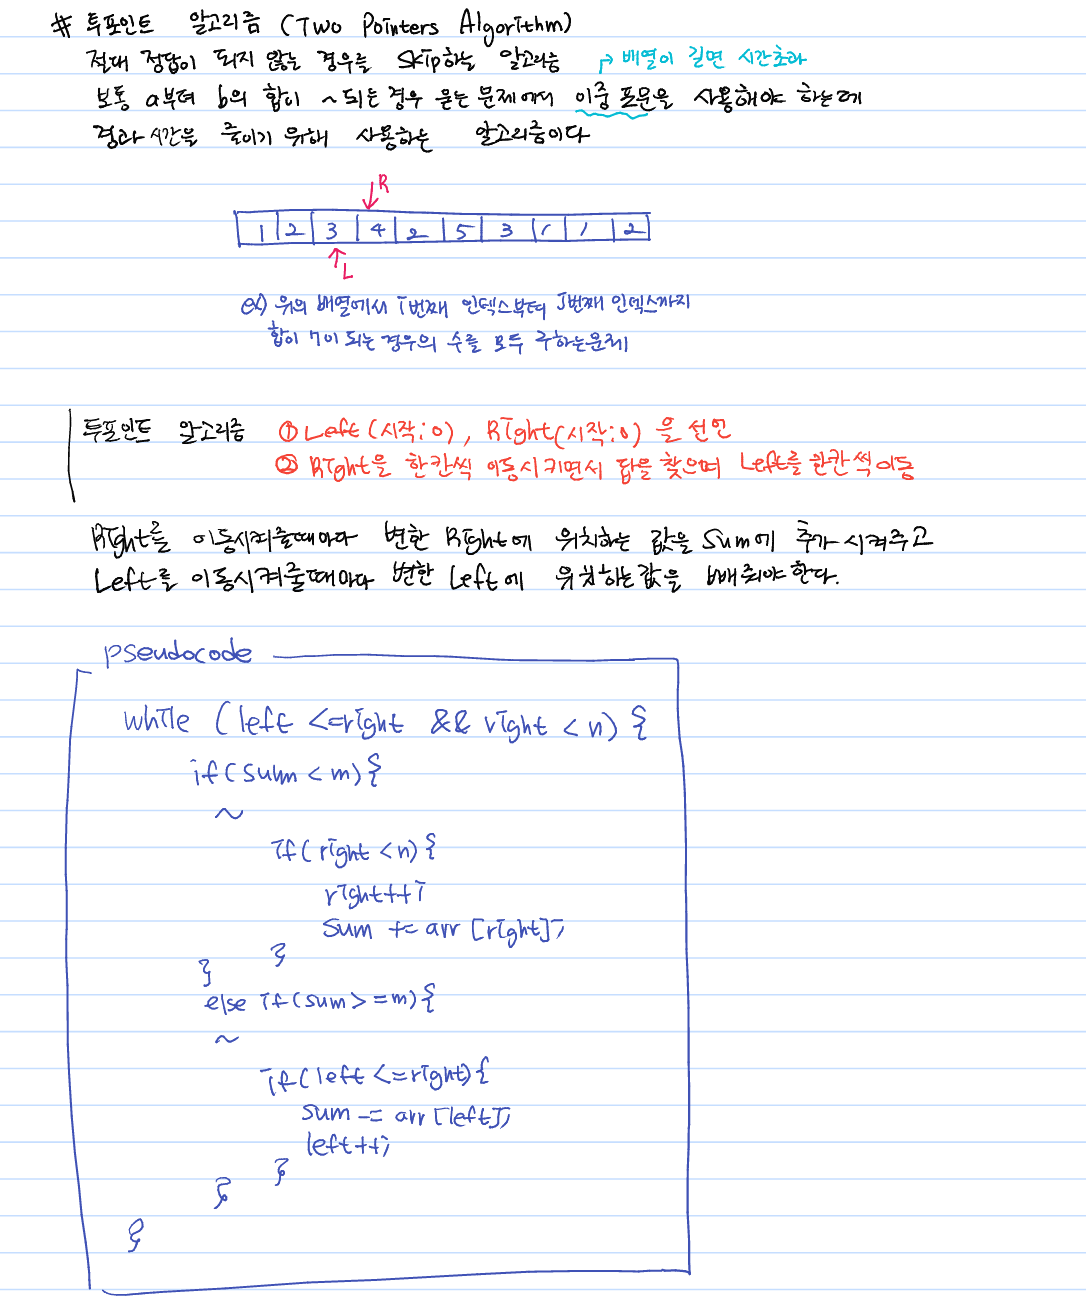 # 투포인트 알고리즘 (Two Pointers Algorithm)
절대 정답이 되지 않는 경우를 skip하는 알고리즘 → 배열이 길면 시간초과
보통 a부터 b의 합이 ~되는 경우 묻는 문제에서 이중 포문을 사용해야 하는데
결과 시간을 줄이기 위해 사용하는 알고리즘이다
R
1 2 3 4 2 5 3 1 1 2
L
ex) 위의 배열에서 i번째 인덱스부터 J번째 인덱스까지
합이 7이 되는 경우의 수를 모두 구하는문제
투포인트 알고리즘 ① Left (시작:0), Right(시작:0) 을 선언
② Right을 한칸씩 이동시키면서 답을 찾으며 Left를 한칸씩 이동
Right를 이동시켜줄때마다 변한 Right에 위치하는 값을 sum에 추가시켜주고
Left를 이동시켜줄때마다 변한 Left에 위치하는값을 빼줘야한다.
pseudocode
while (left <=right && right < n) {
if(sum < m){
~
if(right <n){
right++;
sum += arr [right];
}
}
else if(sum>=m){
~
if(left <=right){
sum -= arr [left];
left++;
}
}
}